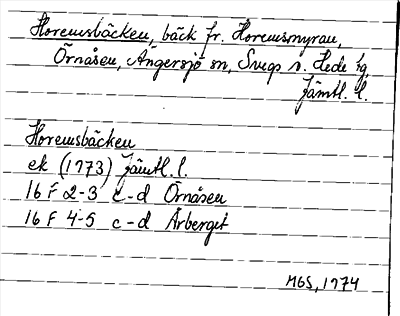 Horemsbäcken, bäck fr. Horemsmyran,
Örnåsen, Ängersjö sn, Svegs o. Hede tg,
Jämtl. l.
Horemsbäcken
ek (1973) Jämtl. l.
16 F 2-3 c-d Örnåsen
16 F 4-5 c-d Årberget
MGS, 1974